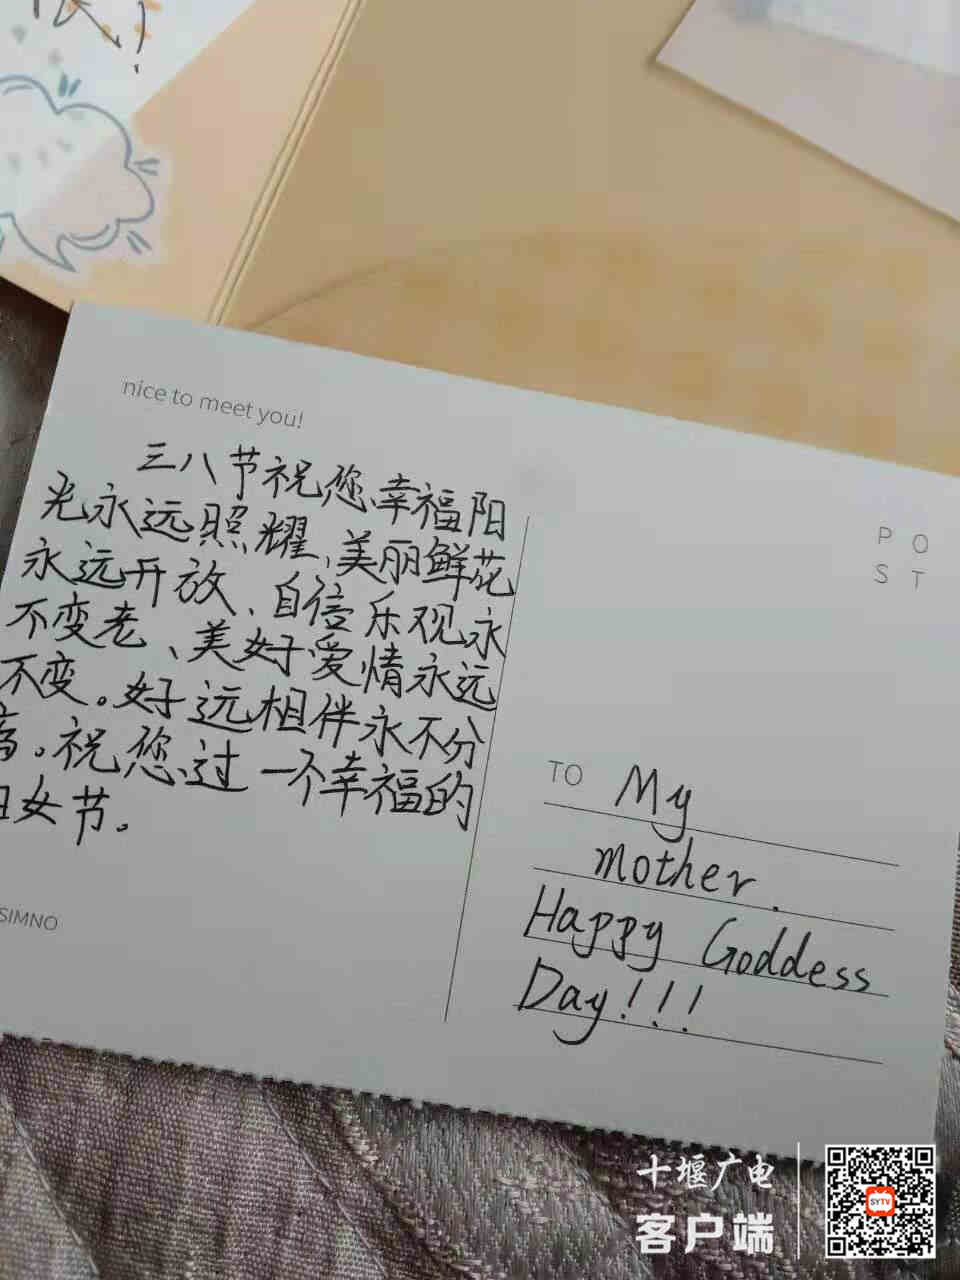 nice to meet you!
三八节祝您幸福阳
光永远照耀、美丽鲜花
永远开放、自信乐观永
不变老、美好爱情永远
不变。好远相伴永不分
。祝您过一个幸福的
女节。
SIMNO
P O
S T
TO My
mother.
Happy Goddess
Day!!!
十堰广电
客户端
SYTV